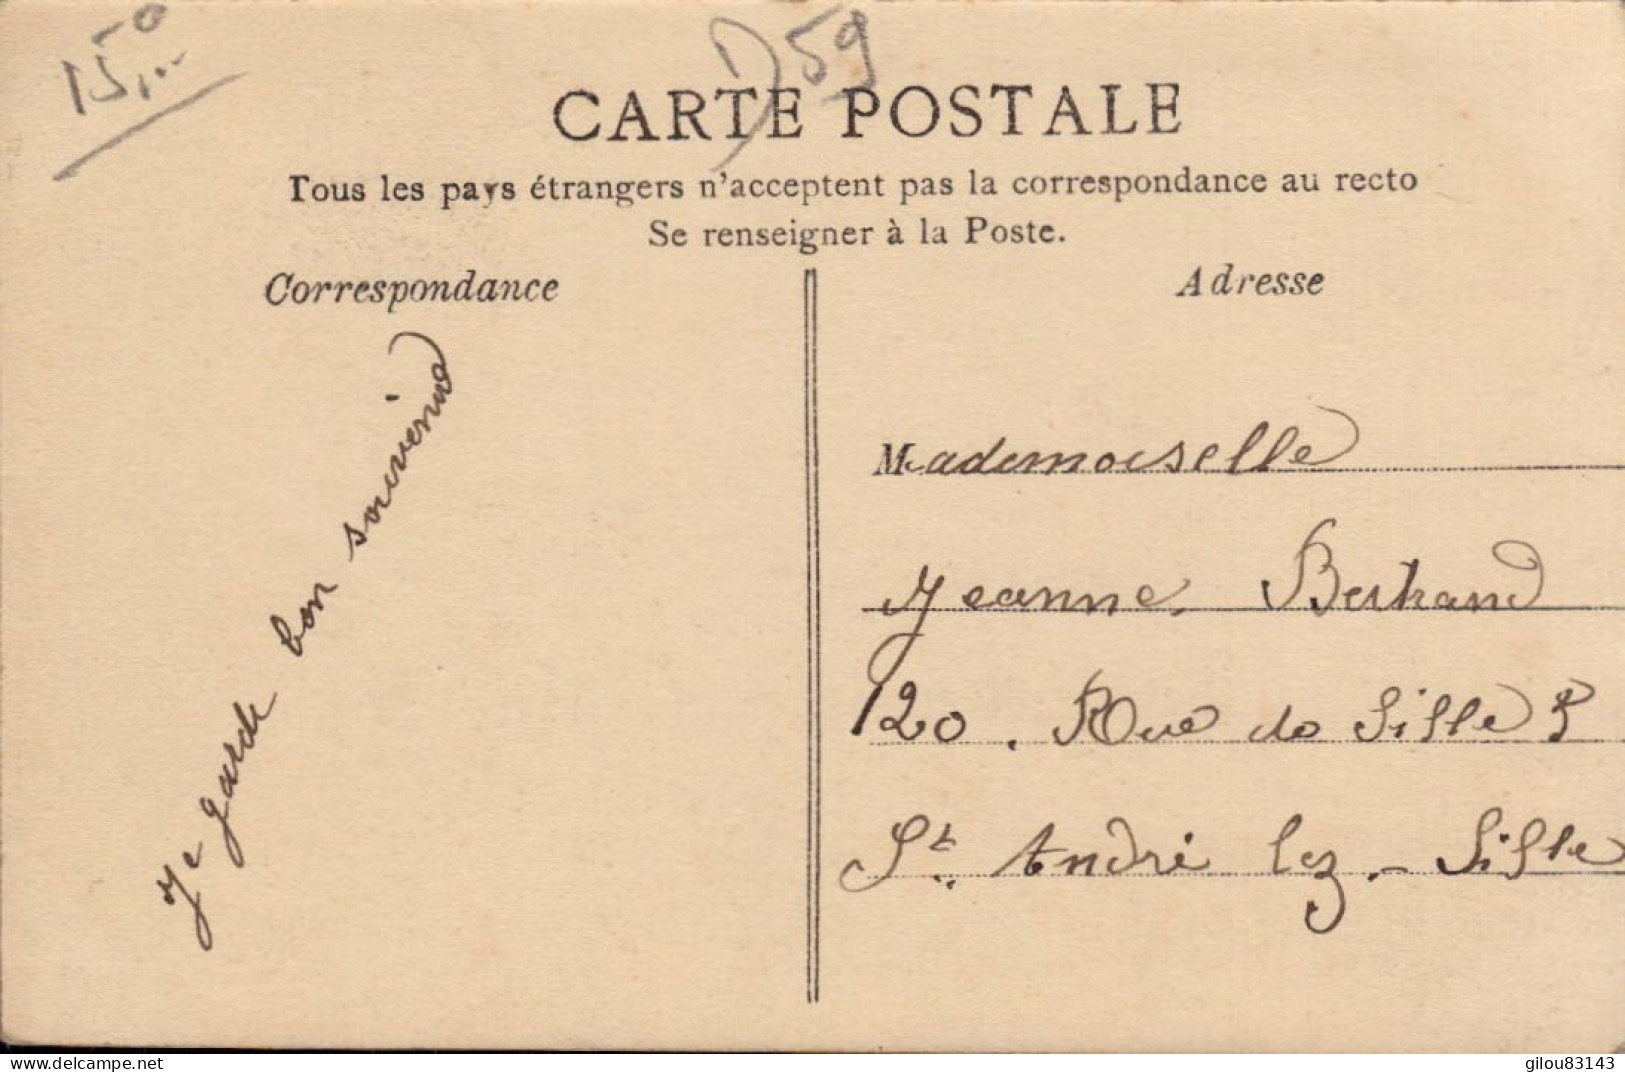 15,00
D59
CARTE POSTALE
Tous les pays étrangers n'acceptent pas la correspondance au recto
Se renseigner à la Poste.
Correspondance
Adresse
Je garde bon souvenir
Mademoiselle
Jeanne Bertrand
120. Rue de Lille
St. André lez-Lille
delcampe.net
gilou83143